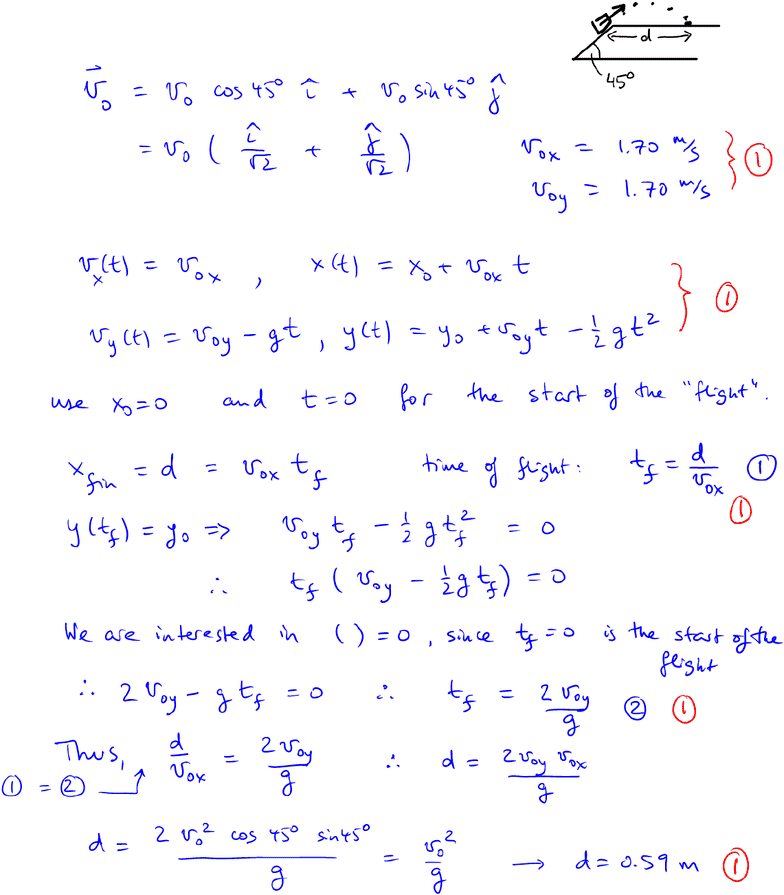 d
45°
v⃗₀ = v₀ cos 45° î + v₀ sin 45° ĵ
= v₀ ( î/√2 + ĵ/√2 )
v₀ₓ = 1.70 m/s } ①
v₀y = 1.70 m/s
vₓ(t) = v₀ₓ , x(t) = x₀ + v₀ₓ t
vy(t) = v₀y - gt , y(t) = y₀ + v₀y t - ½ g t² } ①
use x₀ = 0 and t = 0 for the start of the "flight".
x_fin = d = v₀ₓ t_f time of flight: t_f = d/v₀ₓ ① ①
y(t_f) = y₀ ⇒ v₀y t_f - ½ g t_f² = 0
∴ t_f ( v₀y - ½ g t_f ) = 0
We are interested in ( ) = 0 , since t_f = 0 is the start of the
flight
∴ 2 v₀y - g t_f = 0 ∴ t_f = 2 v₀y/g ② ①
Thus, d/v₀ₓ = 2 v₀y/g ∴ d = 2 v₀y v₀ₓ/g
① = ②
d = 2 v₀² cos 45° sin 45°/g = v₀²/g → d = 0.59 m ①